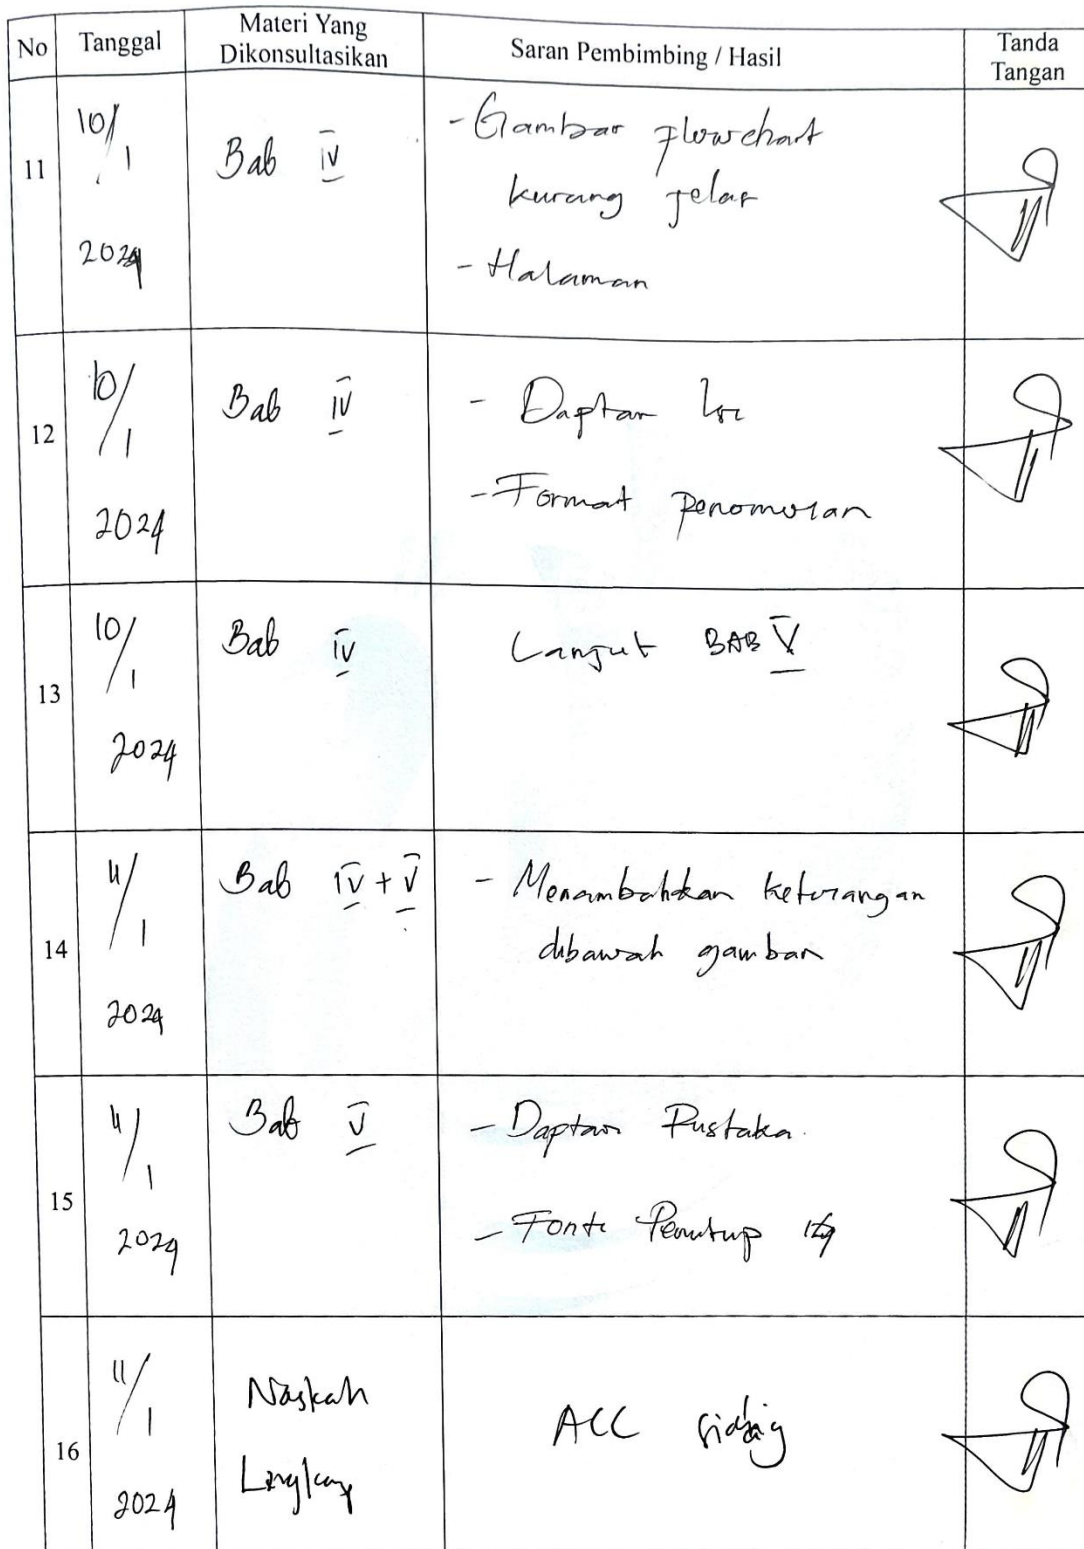 No
Tanggal
Materi Yang
Dikonsultasikan
Saran Pembimbing / Hasil
Tanda
Tangan
11
10/1
2024
Bab IV
- Gambar flowchart
kurang jelas
- Halaman
12
10/1
2024
Bab IV
- Daptar Isi
- Format penomoran
13
10/1
2024
Bab IV
Lanjut BAB V
14
11/1
2024
Bab IV + V
- Menambahkan keterangan
dibawah gambar
15
11/1
2024
Bab V
- Daptar Pustaka
- Font Penutup
16
11/1
2024
Naskah
Lengkap
ACC sidang